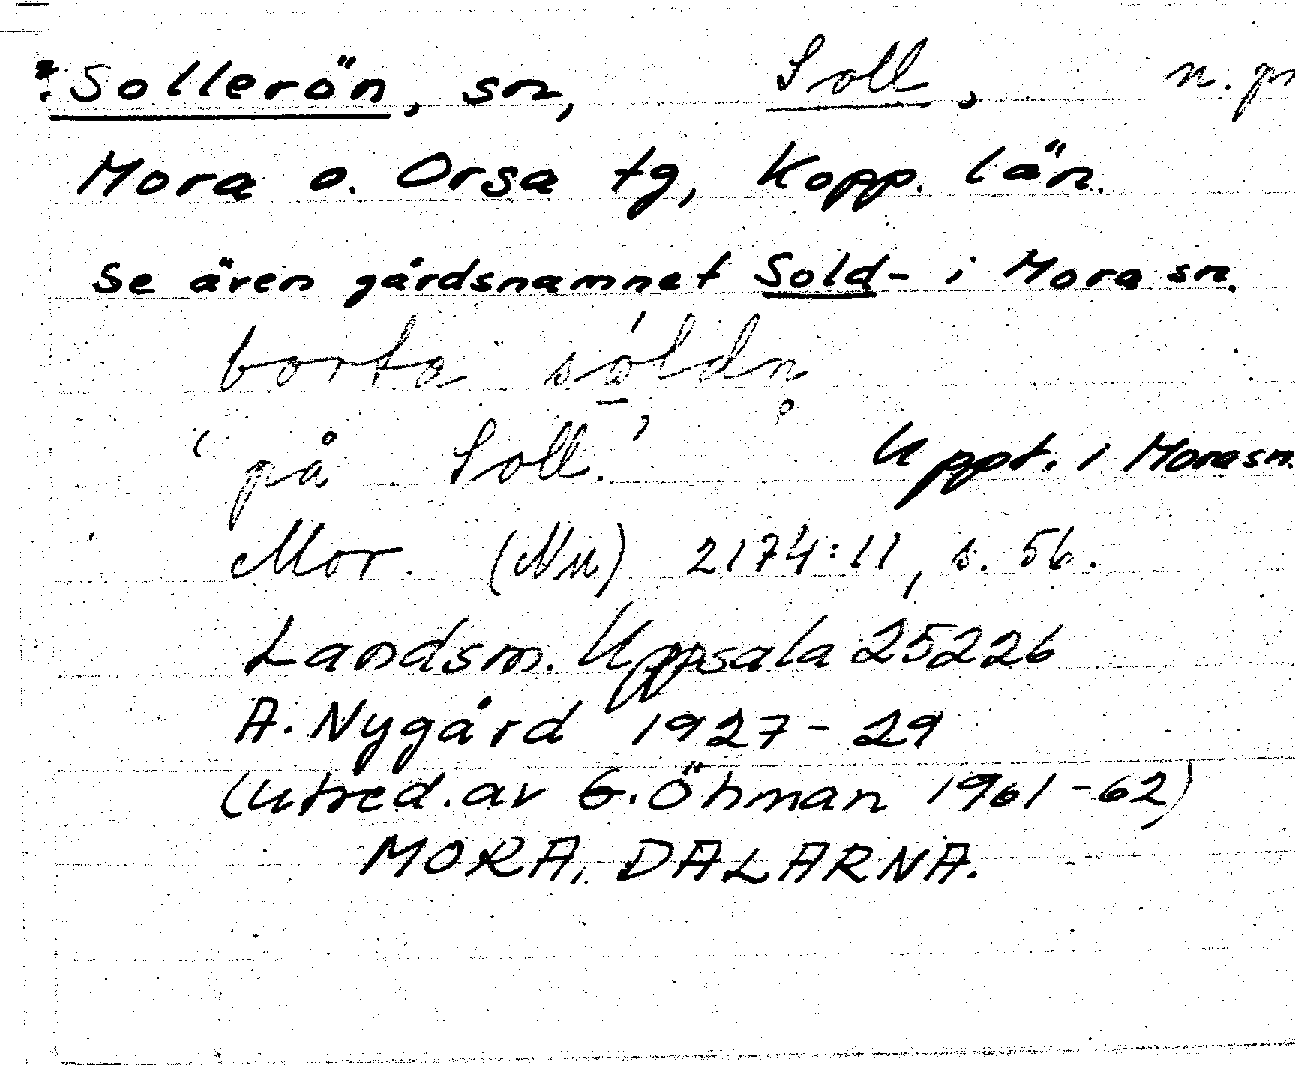 : Sollerön, sn, Soll, n. pr
Mora o. Orsa tg, Kopp. län.
Se även gårdsnamnet Sold- i Mora sn.
borta só̱ldn̥
‘på Soll.’ Uppt. i Mora sn.
Mor. (Nu) 2174:11, s. 56.
Landsm. Uppsala 25226
A. Nygård 1927-29
(Utred. av G. Öhman 1961-62)
MORA, DALARNA.